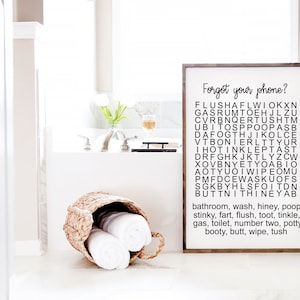 Forgot your phone?
FLUSHAFLWIOKXN
GASRUMTOEHJLZU
CVRBNGERTUSHTM
UBITOSPPOOPASB
DAFOGTHJHDHIAL
VTBONIERLTTYUR
IHOTINKLEPTAST
DRFGHKJKTLYZCW
XOVBNYETYOABIO
AOTYUOIWIPEOMU
PMFDCEWASKUOFS
SGKBYHLSFOITDN
BUTNITHINEYAB
bathroom, wash, hiney, poop
stinky, fart, flush, toot, tinkle,
gas, toilet, number two, potty
booty, butt, wipe, tush